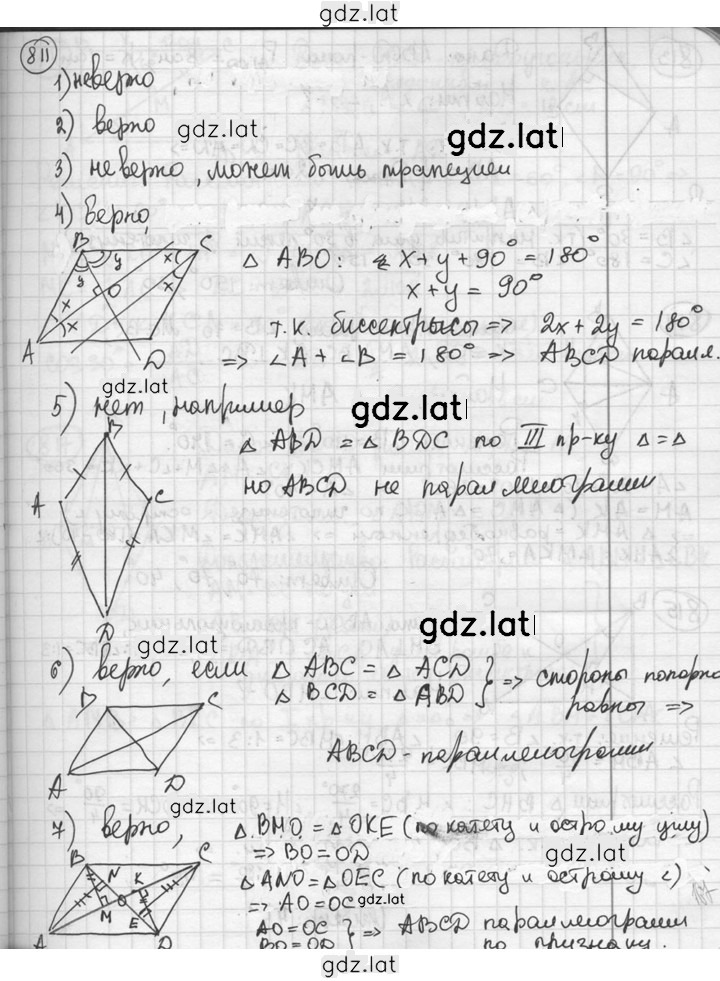 gdz.lat
811
1) неверно,
2) верно
gdz.lat
gdz.lat
3) неверно, может быть трапецией
4) верно,
B
C
y
y
x
x
x
x
O
A
D
△ ABO: x + y + 90° = 180°
x + y = 90°
т.к. биссектрисы => 2x + 2y = 180°
=> ∠A + ∠B = 180° => ABCD паралл.
gdz.lat
gdz.lat
5) нет, например
B
A
C
D
△ ABD = △ BDC по III пр-ку △ = △
но ABCD не параллелограмм
gdz.lat
gdz.lat
6) верно, если △ ABC = △ ACD
△ BCD = △ ABD } => стороны попарно
равны =>
ABCD - параллелограмм
B
C
A
D
gdz.lat
7) верно, △ BMO = △ OKE (по катету и острому углу)
=> BO = OD
gdz.lat
△ ANO = △ OEC (по катету и острому ∠)
=> AO = OC
gdz.lat
AO = OC
BO = OD } => ABCD параллелограмм
по признаку.
B
C
N
K
O
M
E
A
D
gdz.lat